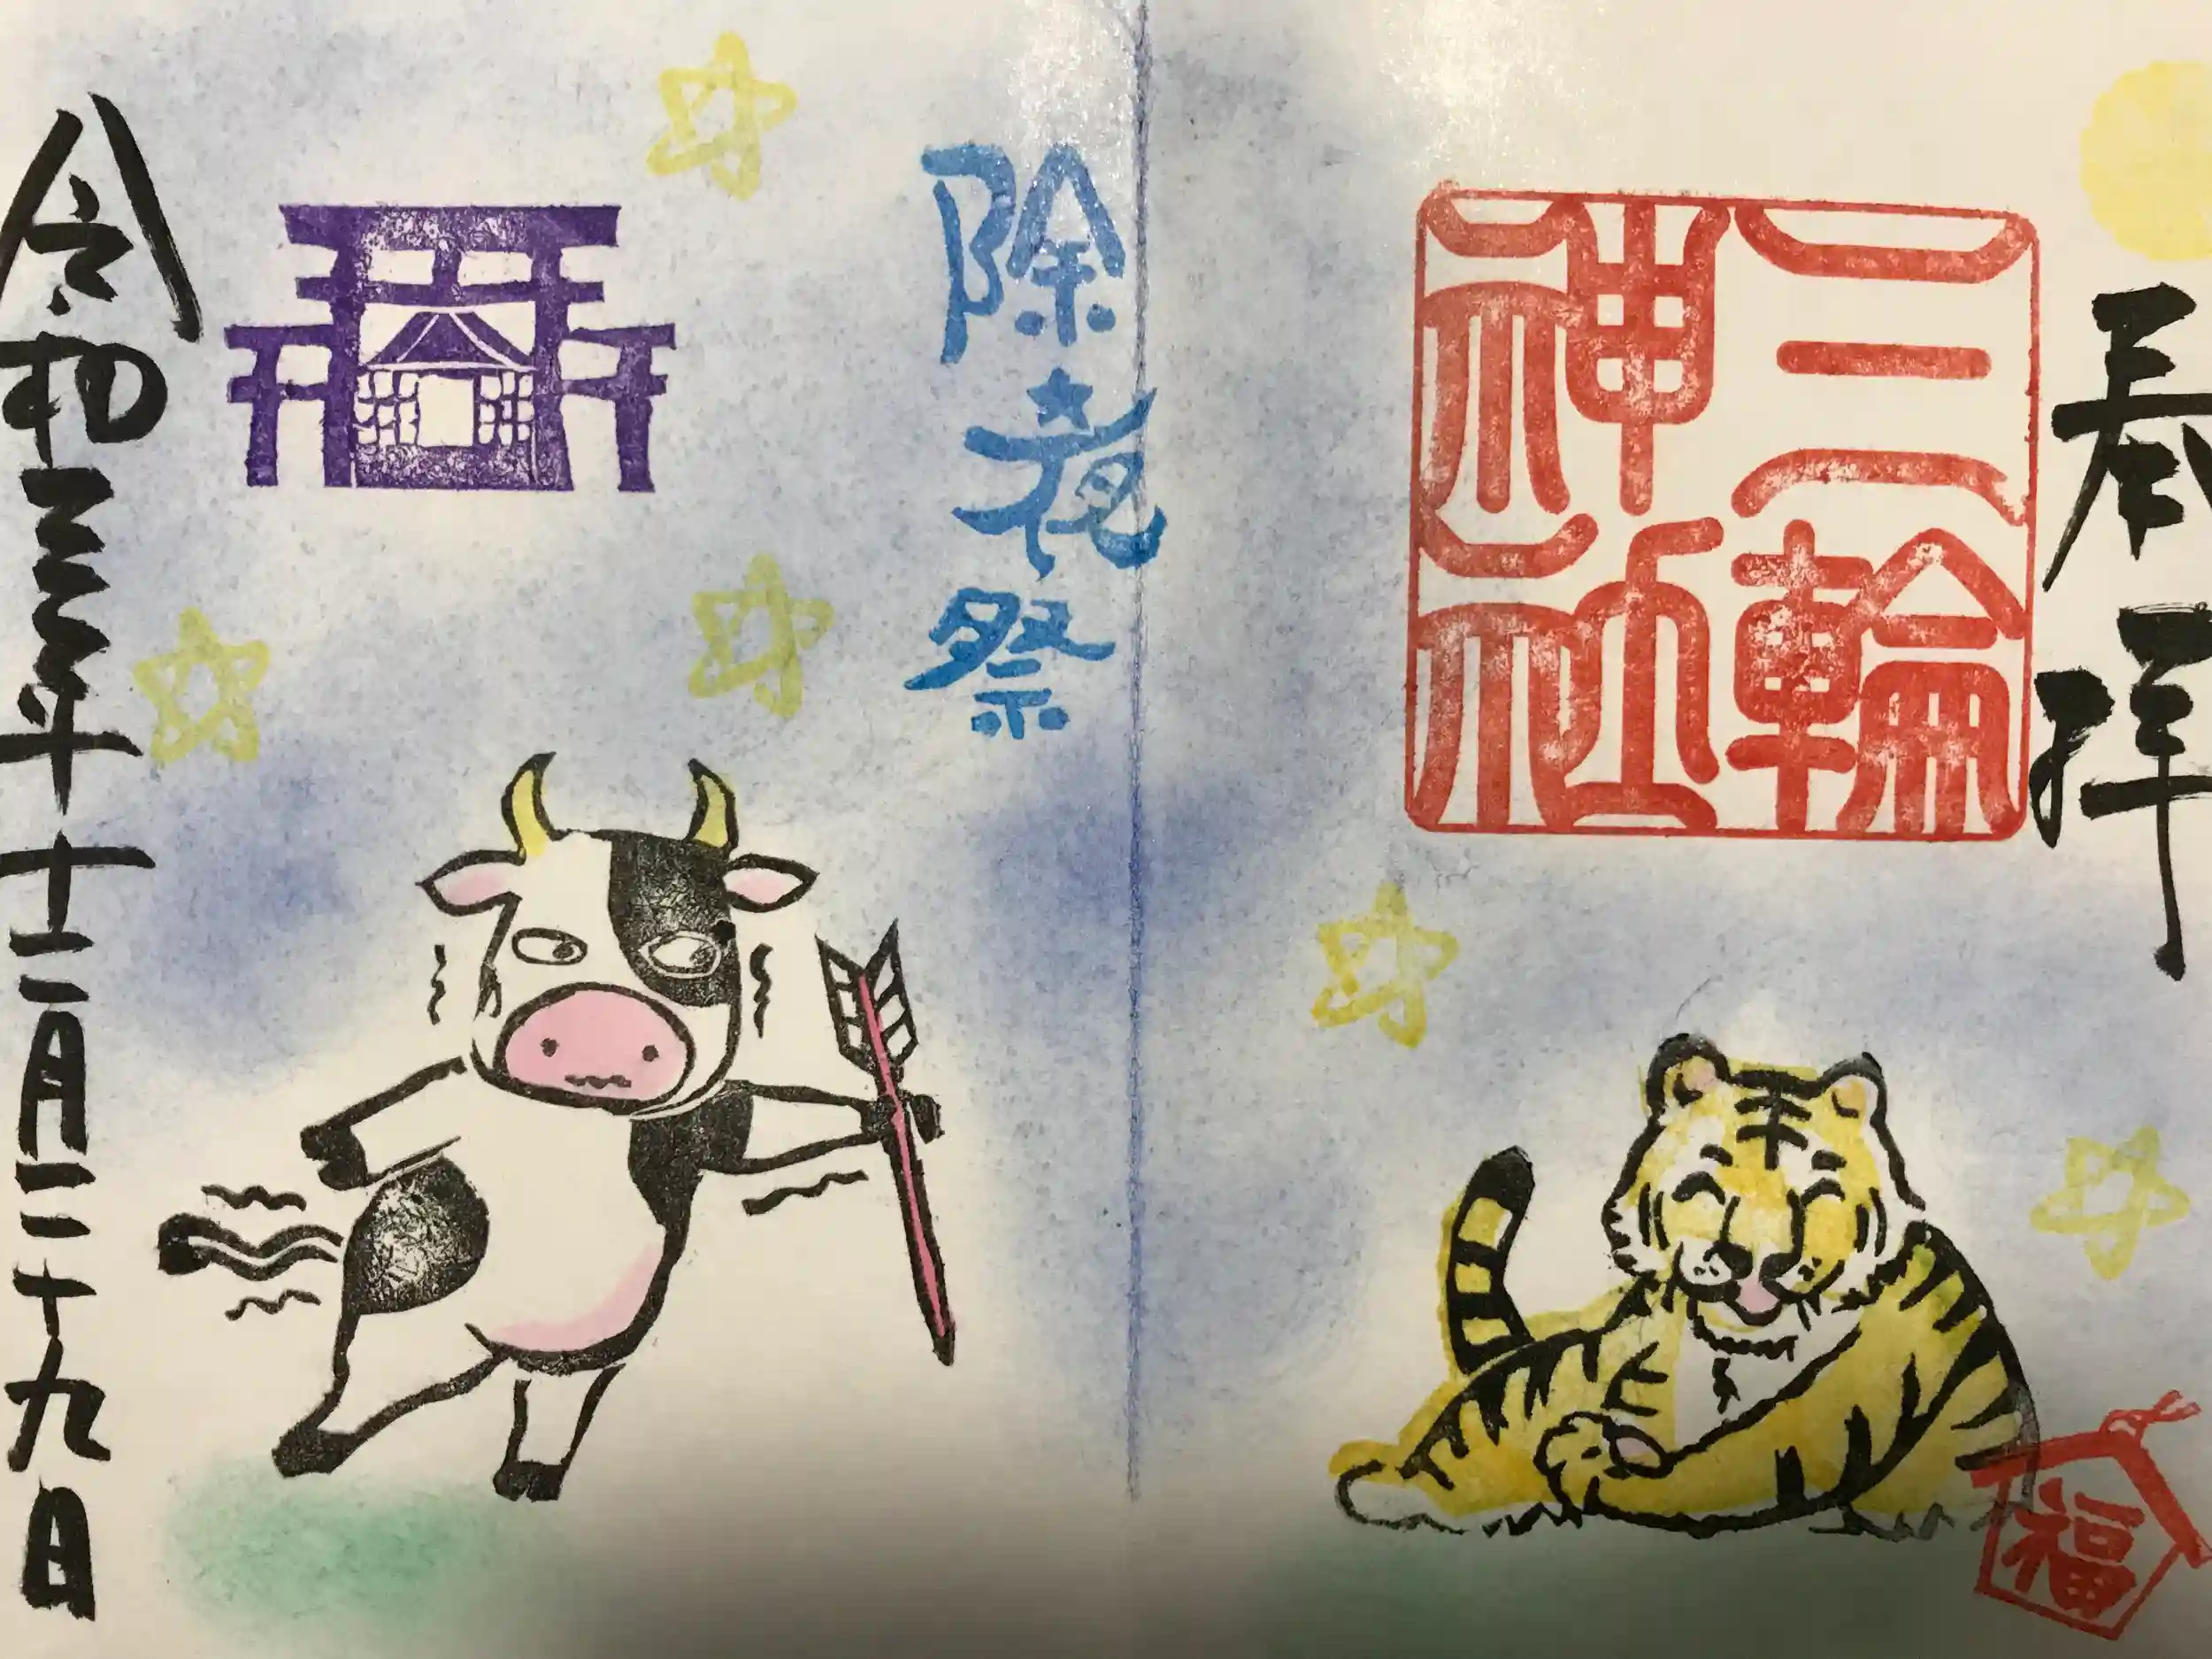 奉拝
三輪
神社
除夜祭
福
令和三年十二月二十九日